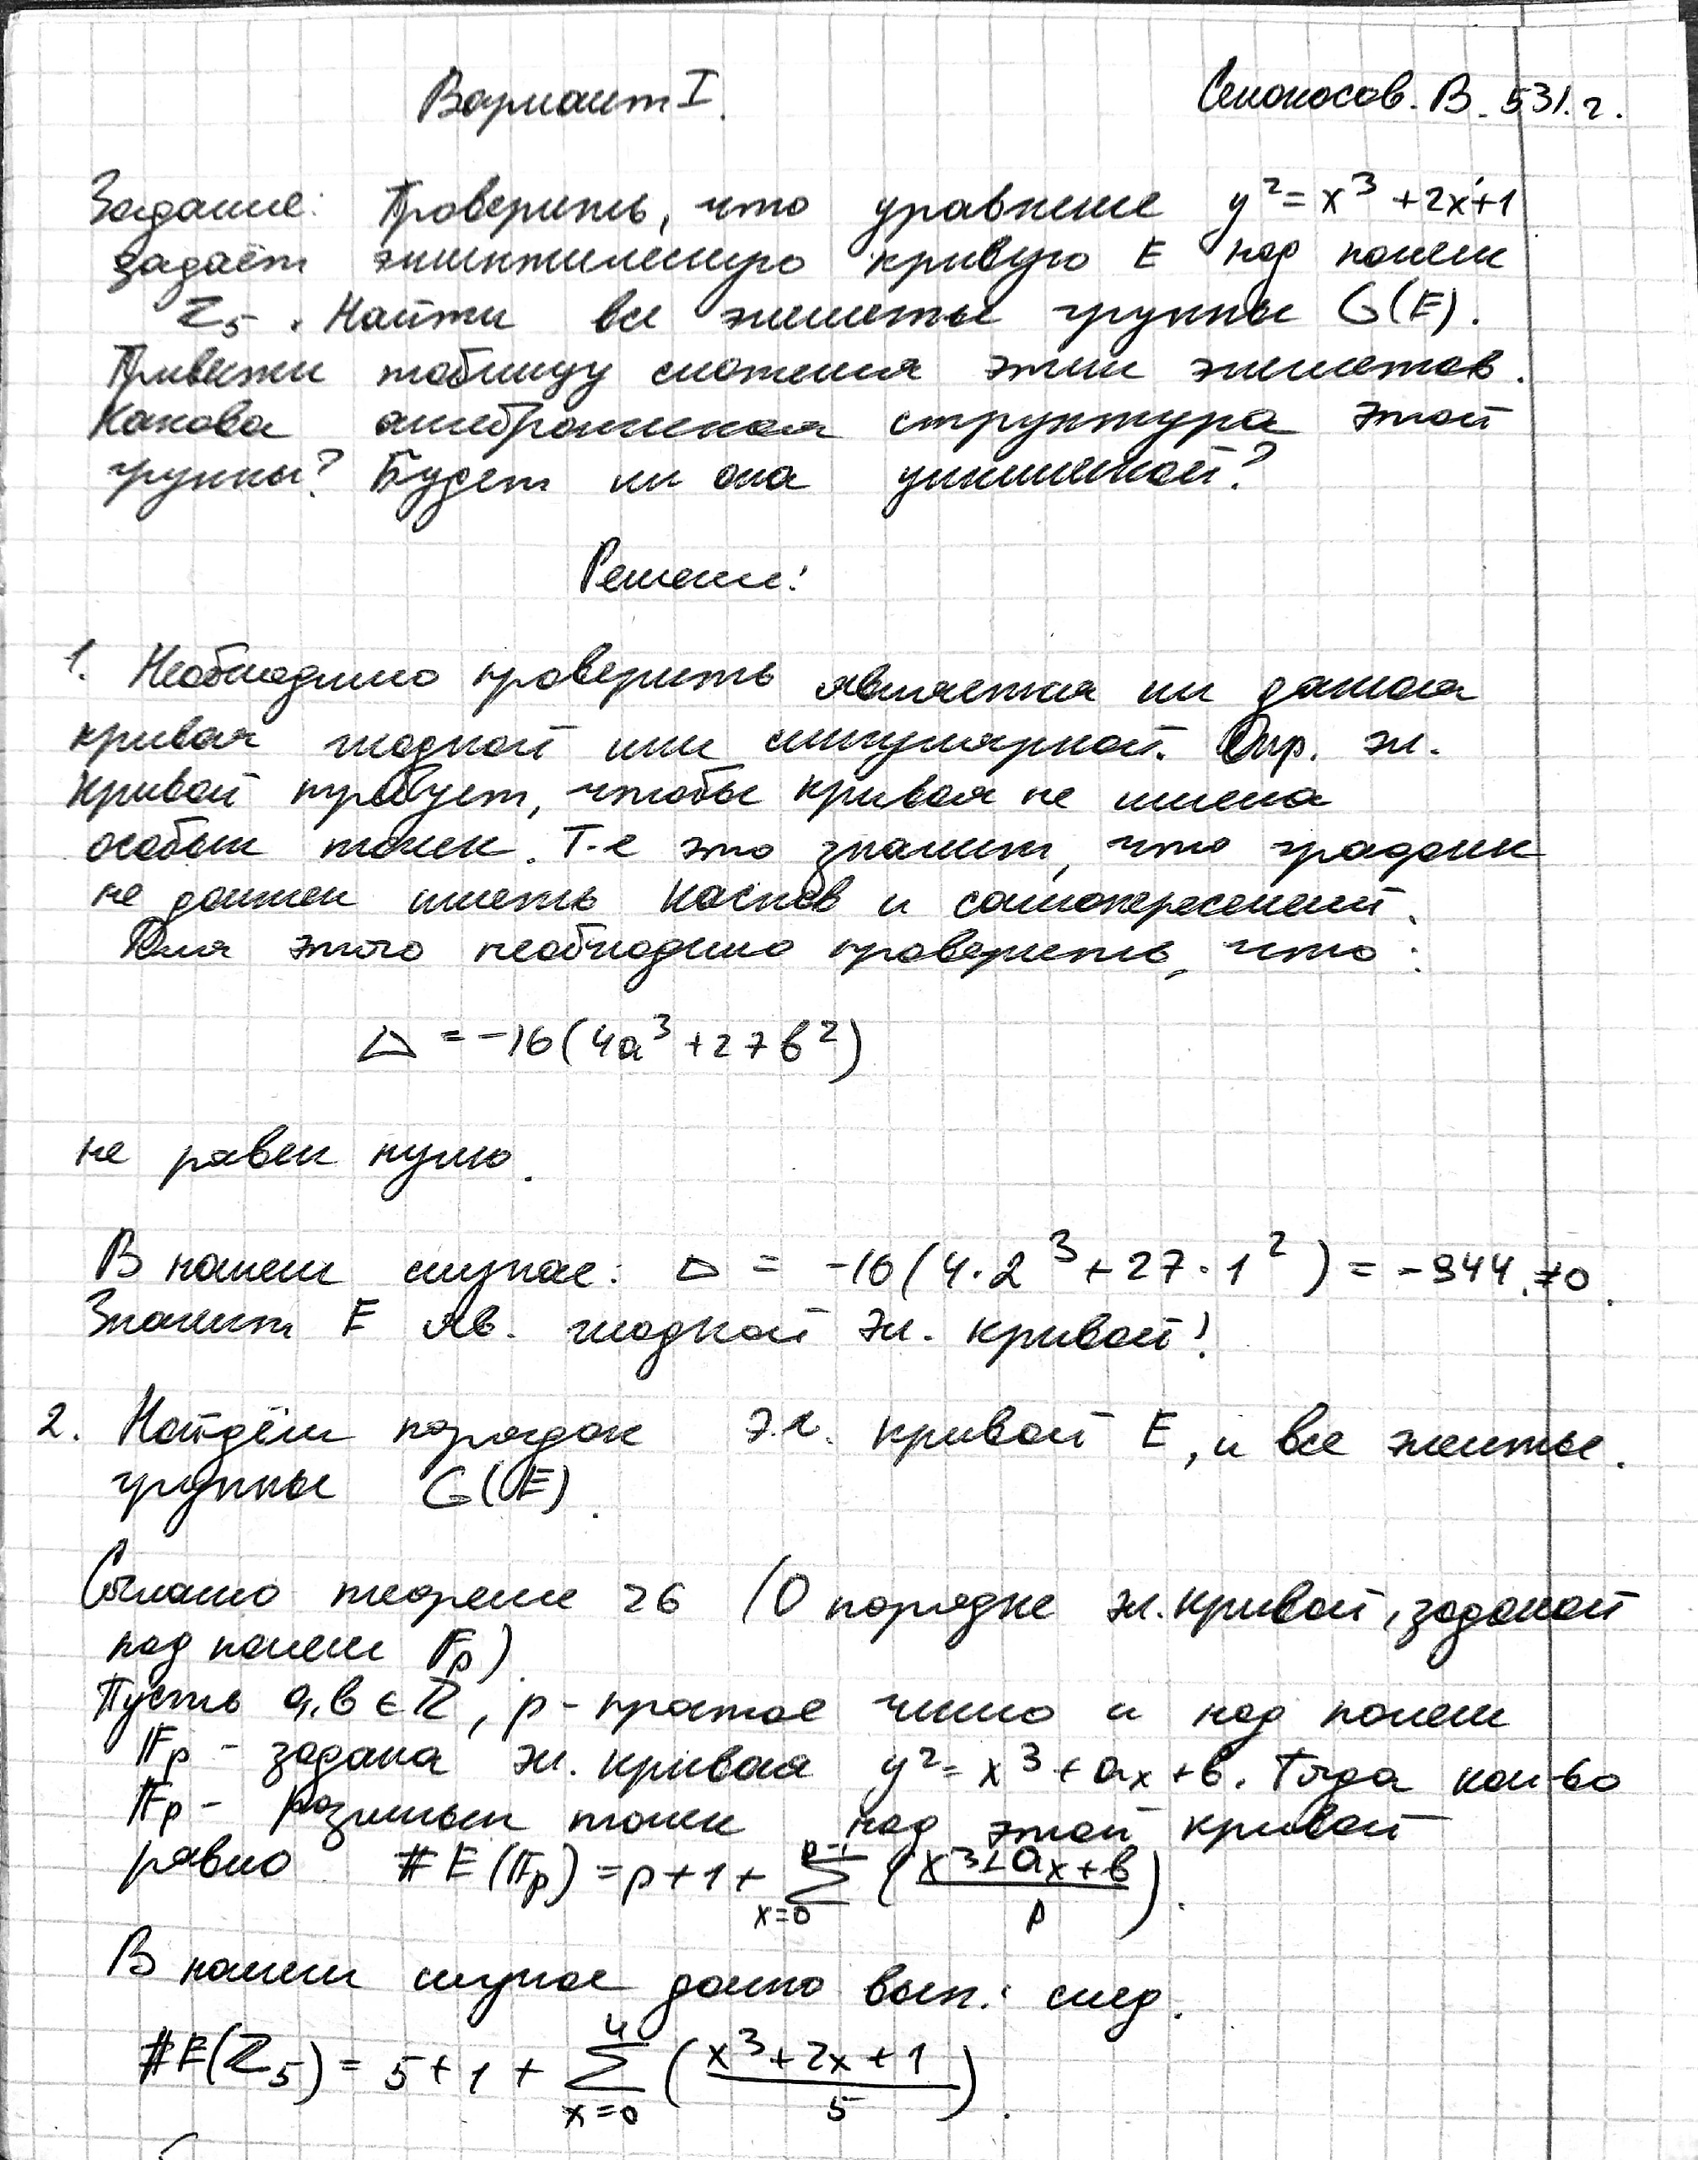 Вариант I.
Сенокосов. В. 531. г.
Задание: Проверить, что уравнение y² = x³ + 2x + 1
задаёт эллиптическую кривую E над полем
Z₅. Найти все элементы группы G(E).
Привести таблицу сложения этих элементов.
Какова алгебраическая структура этой
группы? Будет ли она циклической?
Решение:
1. Необходимо проверить является ли данная
кривая гладкой или сингулярной. Опр. эл.
кривой требует, чтобы кривая не имела
особых точек. Т.е это значит, что график
не должен иметь каспов и самопересечений.
Для этого необходимо проверить, что:
Δ = -16(4a³ + 27b²)
не равен нулю.
В нашем случае: Δ = -16(4·2³ + 27·1²) = -944. ≠0.
Значит E яв. гладкой эл. кривой!
2. Найдём порядок эл. кривой E, и все элем-ты.
группы G(E).
Согласно теореме 26 (О порядке эл. кривой, заданой
над полем Fₚ).
Пусть a, b ∈ Z, p - простое число и над полем
Fₚ - задана эл. кривая y² = x³ + ax + b. Тогда кол-во
Fₚ - различных точек над этой кривой
равно #E(Fₚ) = p + 1 + Σ_{x=0}^{p-1} ((x³ + ax + b)/p).
В нашем случае должно вып.: след.
#E(Z₅) = 5 + 1 + Σ_{x=0}^{4} ((x³ + 2x + 1)/5).